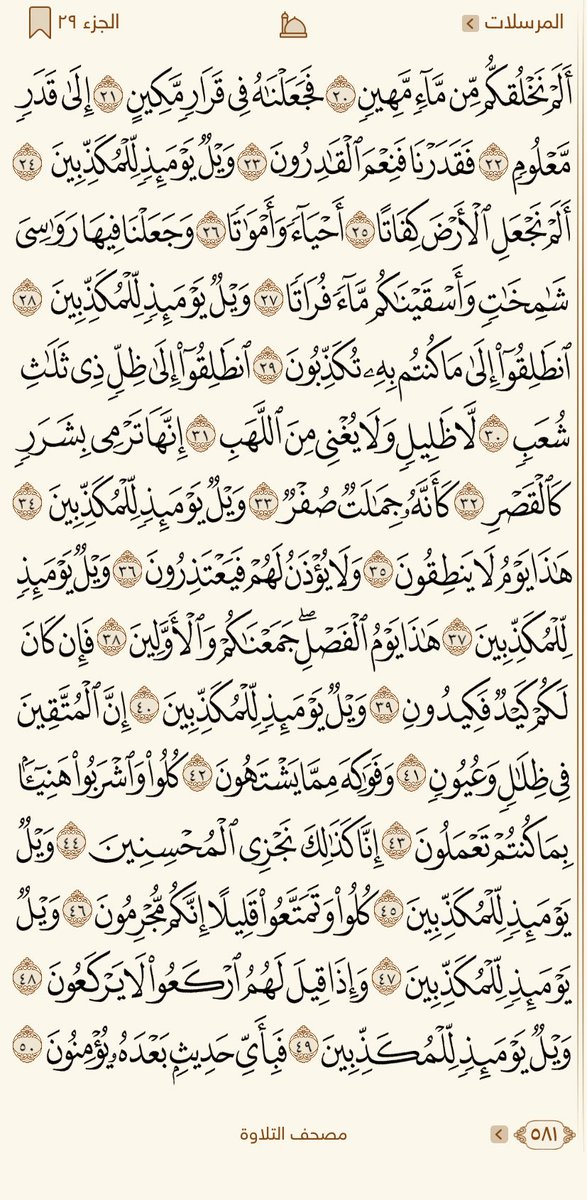 المرسلات الجزء ٢٩
أَلَمْ نَخْلُقكُّم مِّن مَّآءٍ مَّهِينٍ ٢٠ فَجَعَلْنَٰهُ فِى قَرَارٍ مَّكِينٍ ٢١ إِلَىٰ قَدَرٍ
مَّعْلُومٍ ٢٢ فَقَدَرْنَا فَنِعْمَ ٱلْقَٰدِرُونَ ٢٣ وَيْلٌ يَوْمَئِذٍ لِّلْمُكَذِّبِينَ ٢٤
أَلَمْ نَجْعَلِ ٱلْأَرْضَ كِفَاتًا ٢٥ أَحْيَآءً وَأَمْوَٰتًا ٢٦ وَجَعَلْنَا فِيهَا رَوَٰسِىَ
شَٰمِخَٰتٍ وَأَسْقَيْنَٰكُم مَّآءً فُرَاتًا ٢٧ وَيْلٌ يَوْمَئِذٍ لِّلْمُكَذِّبِينَ ٢٨
ٱنطَلِقُوٓا۟ إِلَىٰ مَا كُنتُم بِهِۦ تُكَذِّبُونَ ٢٩ ٱنطَلِقُوٓا۟ إِلَىٰ ظِلٍّ ذِى ثَلَٰثِ
شُعَبٍ ٣٠ لَّا ظَلِيلٍ وَلَا يُغْنِى مِنَ ٱللَّهَبِ ٣١ إِنَّهَا تَرْمِى بِشَرَرٍ
كَٱلْقَصْرِ ٣٢ كَأَنَّهُۥ جِمَٰلَتٌ صُفْرٌ ٣٣ وَيْلٌ يَوْمَئِذٍ لِّلْمُكَذِّبِينَ ٣٤
هَٰذَا يَوْمُ لَا يَنطِقُونَ ٣٥ وَلَا يُؤْذَنُ لَهُمْ فَيَعْتَذِرُونَ ٣٦ وَيْلٌ يَوْمَئِذٍ
لِّلْمُكَذِّبِينَ ٣٧ هَٰذَا يَوْمُ ٱلْفَصْلِ ۖ جَمَعْنَٰكُمْ وَٱلْأَوَّلِينَ ٣٨ فَإِن كَانَ
لَكُمْ كَيْدٌ فَكِيدُونِ ٣٩ وَيْلٌ يَوْمَئِذٍ لِّلْمُكَذِّبِينَ ٤٠ إِنَّ ٱلْمُتَّقِينَ
فِى ظِلَٰلٍ وَعُيُونٍ ٤١ وَفَوَٰكِهَ مِمَّا يَشْتَهُونَ ٤٢ كُلُوا۟ وَٱشْرَبُوا۟ هَنِيٓـًٔۢا
بِمَا كُنتُمْ تَعْمَلُونَ ٤٣ إِنَّا كَذَٰلِكَ نَجْزِى ٱلْمُحْسِنِينَ ٤٤ وَيْلٌ
يَوْمَئِذٍ لِّلْمُكَذِّبِينَ ٤٥ كُلُوا۟ وَتَمَتَّعُوا۟ قَلِيلًا إِنَّكُم مُّجْرِمُونَ ٤٦ وَيْلٌ
يَوْمَئِذٍ لِّلْمُكَذِّبِينَ ٤٧ وَإِذَا قِيلَ لَهُمُ ٱرْكَعُوا۟ لَا يَرْكَعُونَ ٤٨
وَيْلٌ يَوْمَئِذٍ لِّلْمُكَذِّبِينَ ٤٩ فَبِأَىِّ حَدِيثٍۭ بَعْدَهُۥ يُؤْمِنُونَ ٥٠
٥٨١ مصحف التلاوة